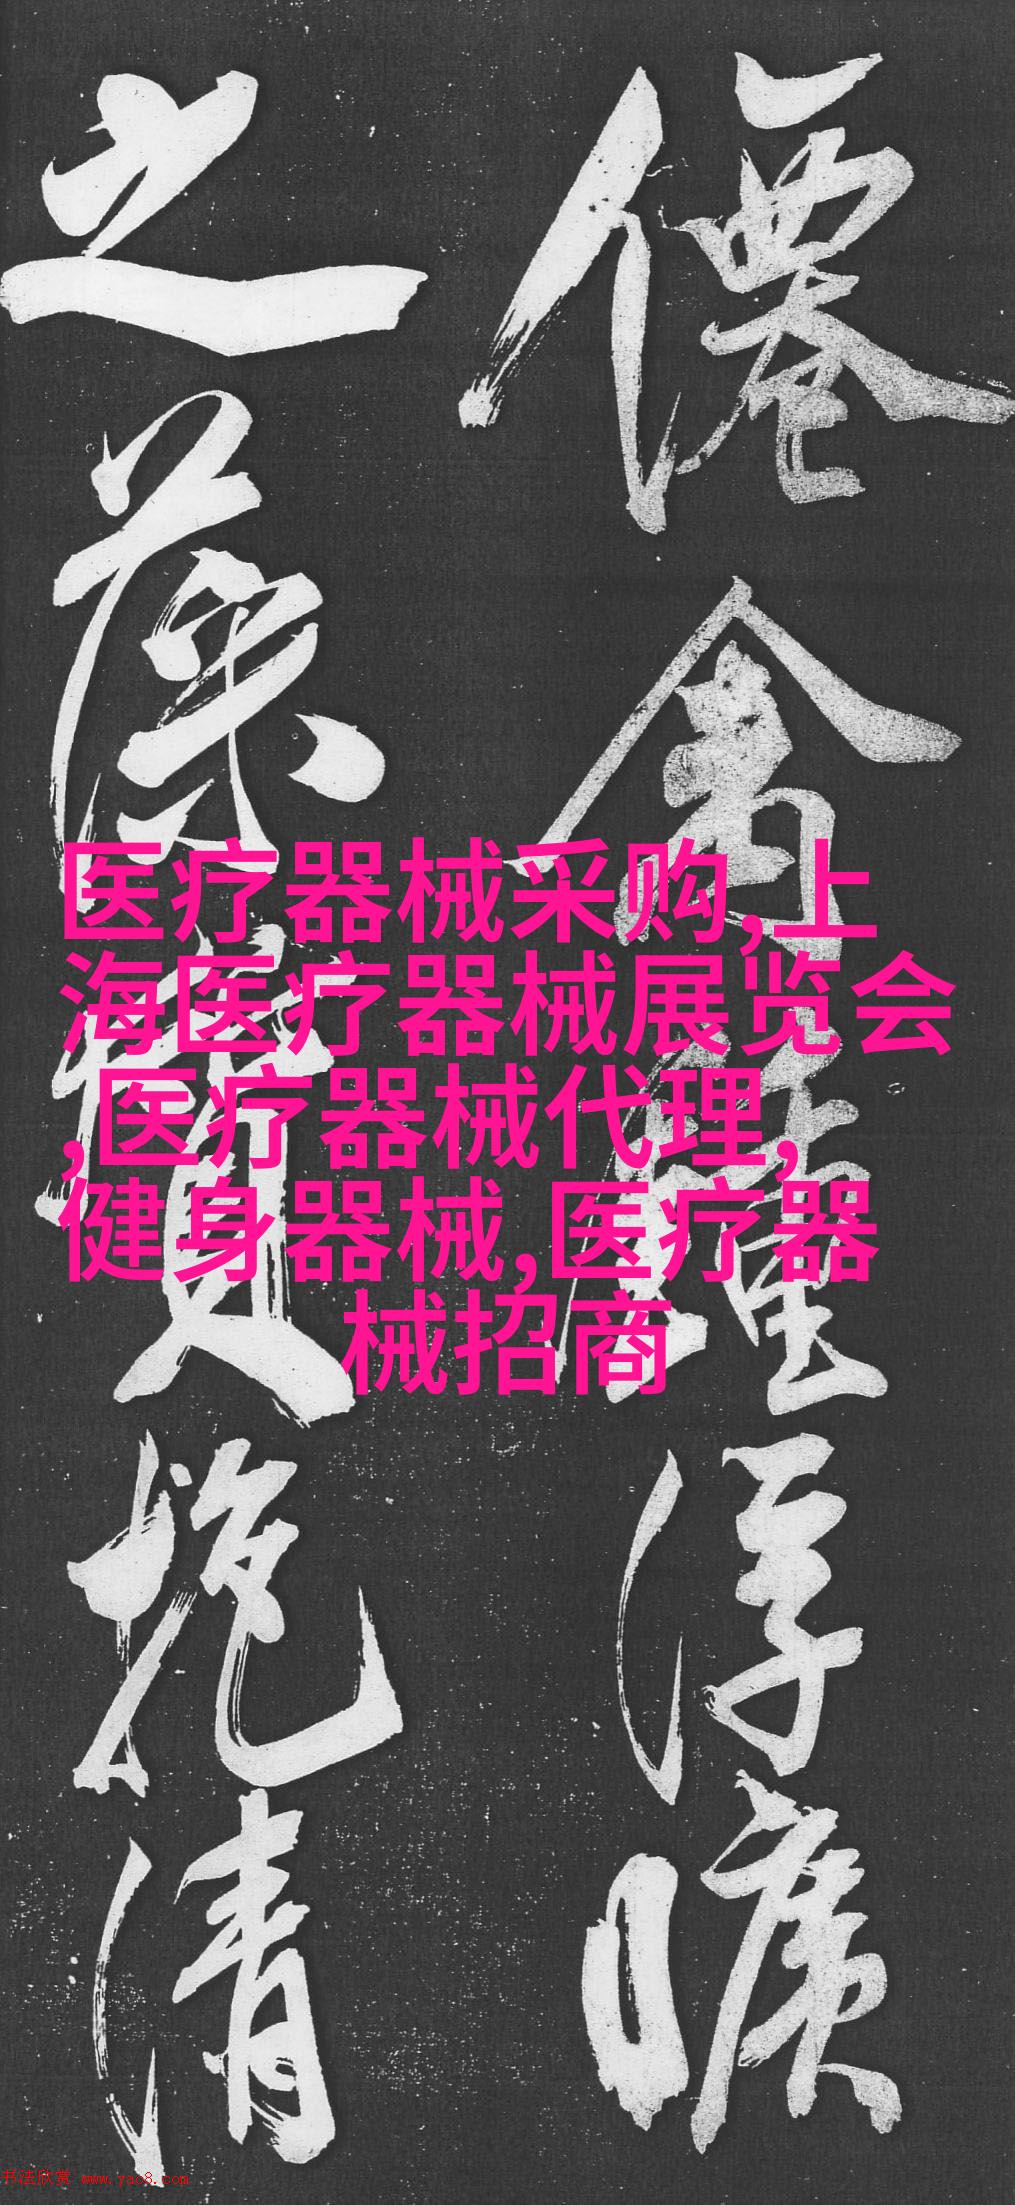 僊禽鍾浮曠
之藻質抱清
医疗器械采购,上
海医疗器械展览会
,医疗器械代理,
健身器械,医疗器
械招商
书法欣赏 www.yac8.com